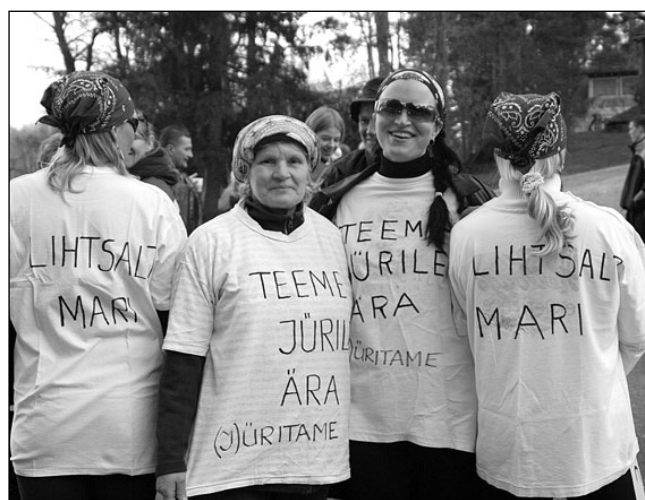 LIHTSALT
MARI
TEEME
JÜRILE
ÄRA
(J)ÜRITAME
TEEME
JÜRILE
ÄRA
(J)ÜRITAME
LIHTSALT
MARI